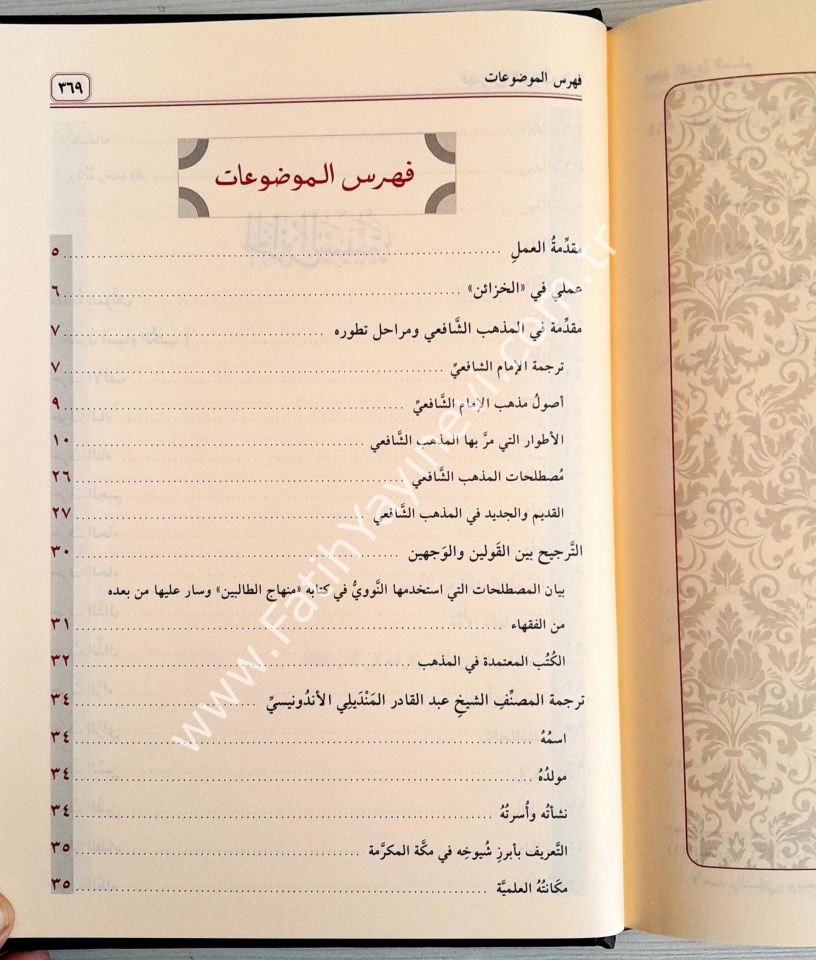 فهرس الموضوعات ٣٦٩
فهرس الموضوعات
مقدِّمةُ العملِ ٥
عملي في «الخزائن» ٦
مقدِّمة في المذهب الشَّافعي ومراحل تطوره ٧
ترجمة الإمام الشافعيِّ ٧
أصولُ مذهب الإمام الشَّافعيِّ ٩
الأطوار التي مرَّ بها المذهب الشَّافعي ١٠
مُصطلحات المذهب الشَّافعي ٢٦
القديم والجديد في المذهب الشَّافعي ٢٧
التَّرجيح بين القَولين والوَجهين ٣٠
بيان المصطلحات التي استخدمها النَّوويُّ في كتابه «منهاج الطالبين» وسار عليها من بعده
من الفقهاء ٣١
الكُتُب المعتمدة في المذهب ٣٢
ترجمة المصنِّفِ الشيخِ عبد القادر المَنْدَيلي الأندُونيسيِّ ٣٤
اسمُهُ ٣٤
مولدُهُ ٣٤
نشأتُه وأُسرتُهُ ٣٤
التَّعريف بأبرزِ شُيوخِه في مكَّة المكرَّمة ٣٥
مكَانتُهُ العلميَّة ٣٥
www.FatihYayinevi.com.tr